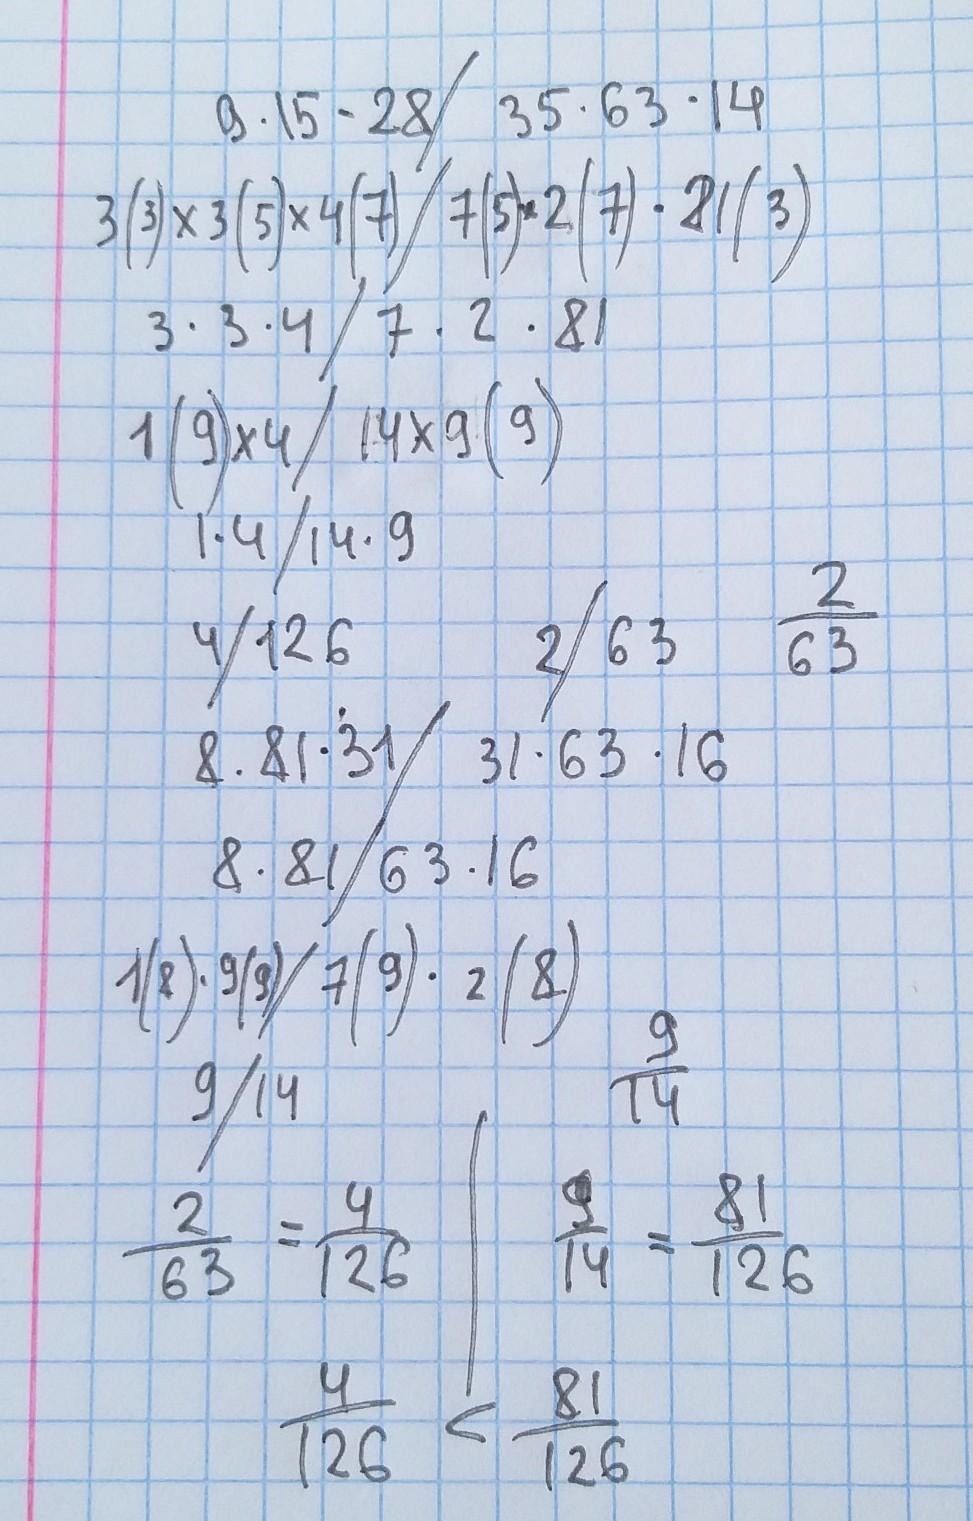 9·15·28/ 35·63·14
3(3)×3(5)×4(7)/7(5)·2(7)·21(3)
3·3·4/7·2·81
1(9)×4/14×9(9)
1·4/14·9
4/126 2/63 2/63
8·81·31/ 31·63·16
8·81/63·16
1(8)·9(9)/7(9)·2(8)
9/14 9/14
2/63 = 4/126 | 9/14 = 81/126
4/126 < 81/126